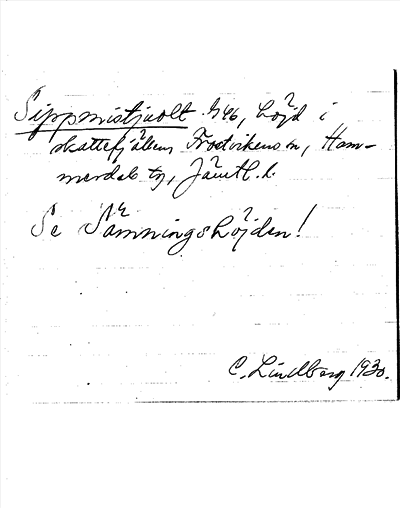 Sippmistjuolt 246, höjd i
skattefjällen Frostvikens sn, Ham-
merdals tg, Jämtl. l.
Se Sämningshöjden!
C. Lindberg 1930.